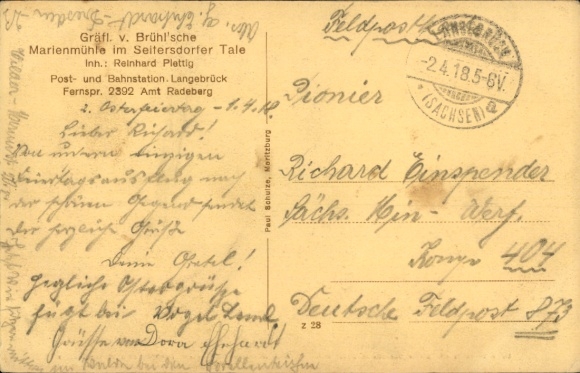 Abs. g. Ehrhardt - Dresden 23
Gräfl. v. Brühl'sche
Marienmühle im Seifersdorfer Tale
Inh.: Reinhard Plettig
Post- und Bahnstation Langebrück
Fernspr. 2392 Amt Radeberg
2. Osterfeiertag - 1.4.18.
Lieber Richard!
Von unserm einzigen
Feiertagsausflug nach
der schönen Gegend sendet
dir herzliche Grüße
Deine Gretel!
Herzliche Ostergrüße
fügt bei
Grüße von Dora Ehrhardt
im Walde bei den Forellenteichen
Paul Schulze, Moritzburg
Feldpostk.
LANGEBRÜCK
-2.4.18.5-6V.
* (SACHSEN) a
Pionier
Richard Einspender
Sächs. Min.-Werf.
Komp. 404
Deutsche Feldpost 873
Z 28